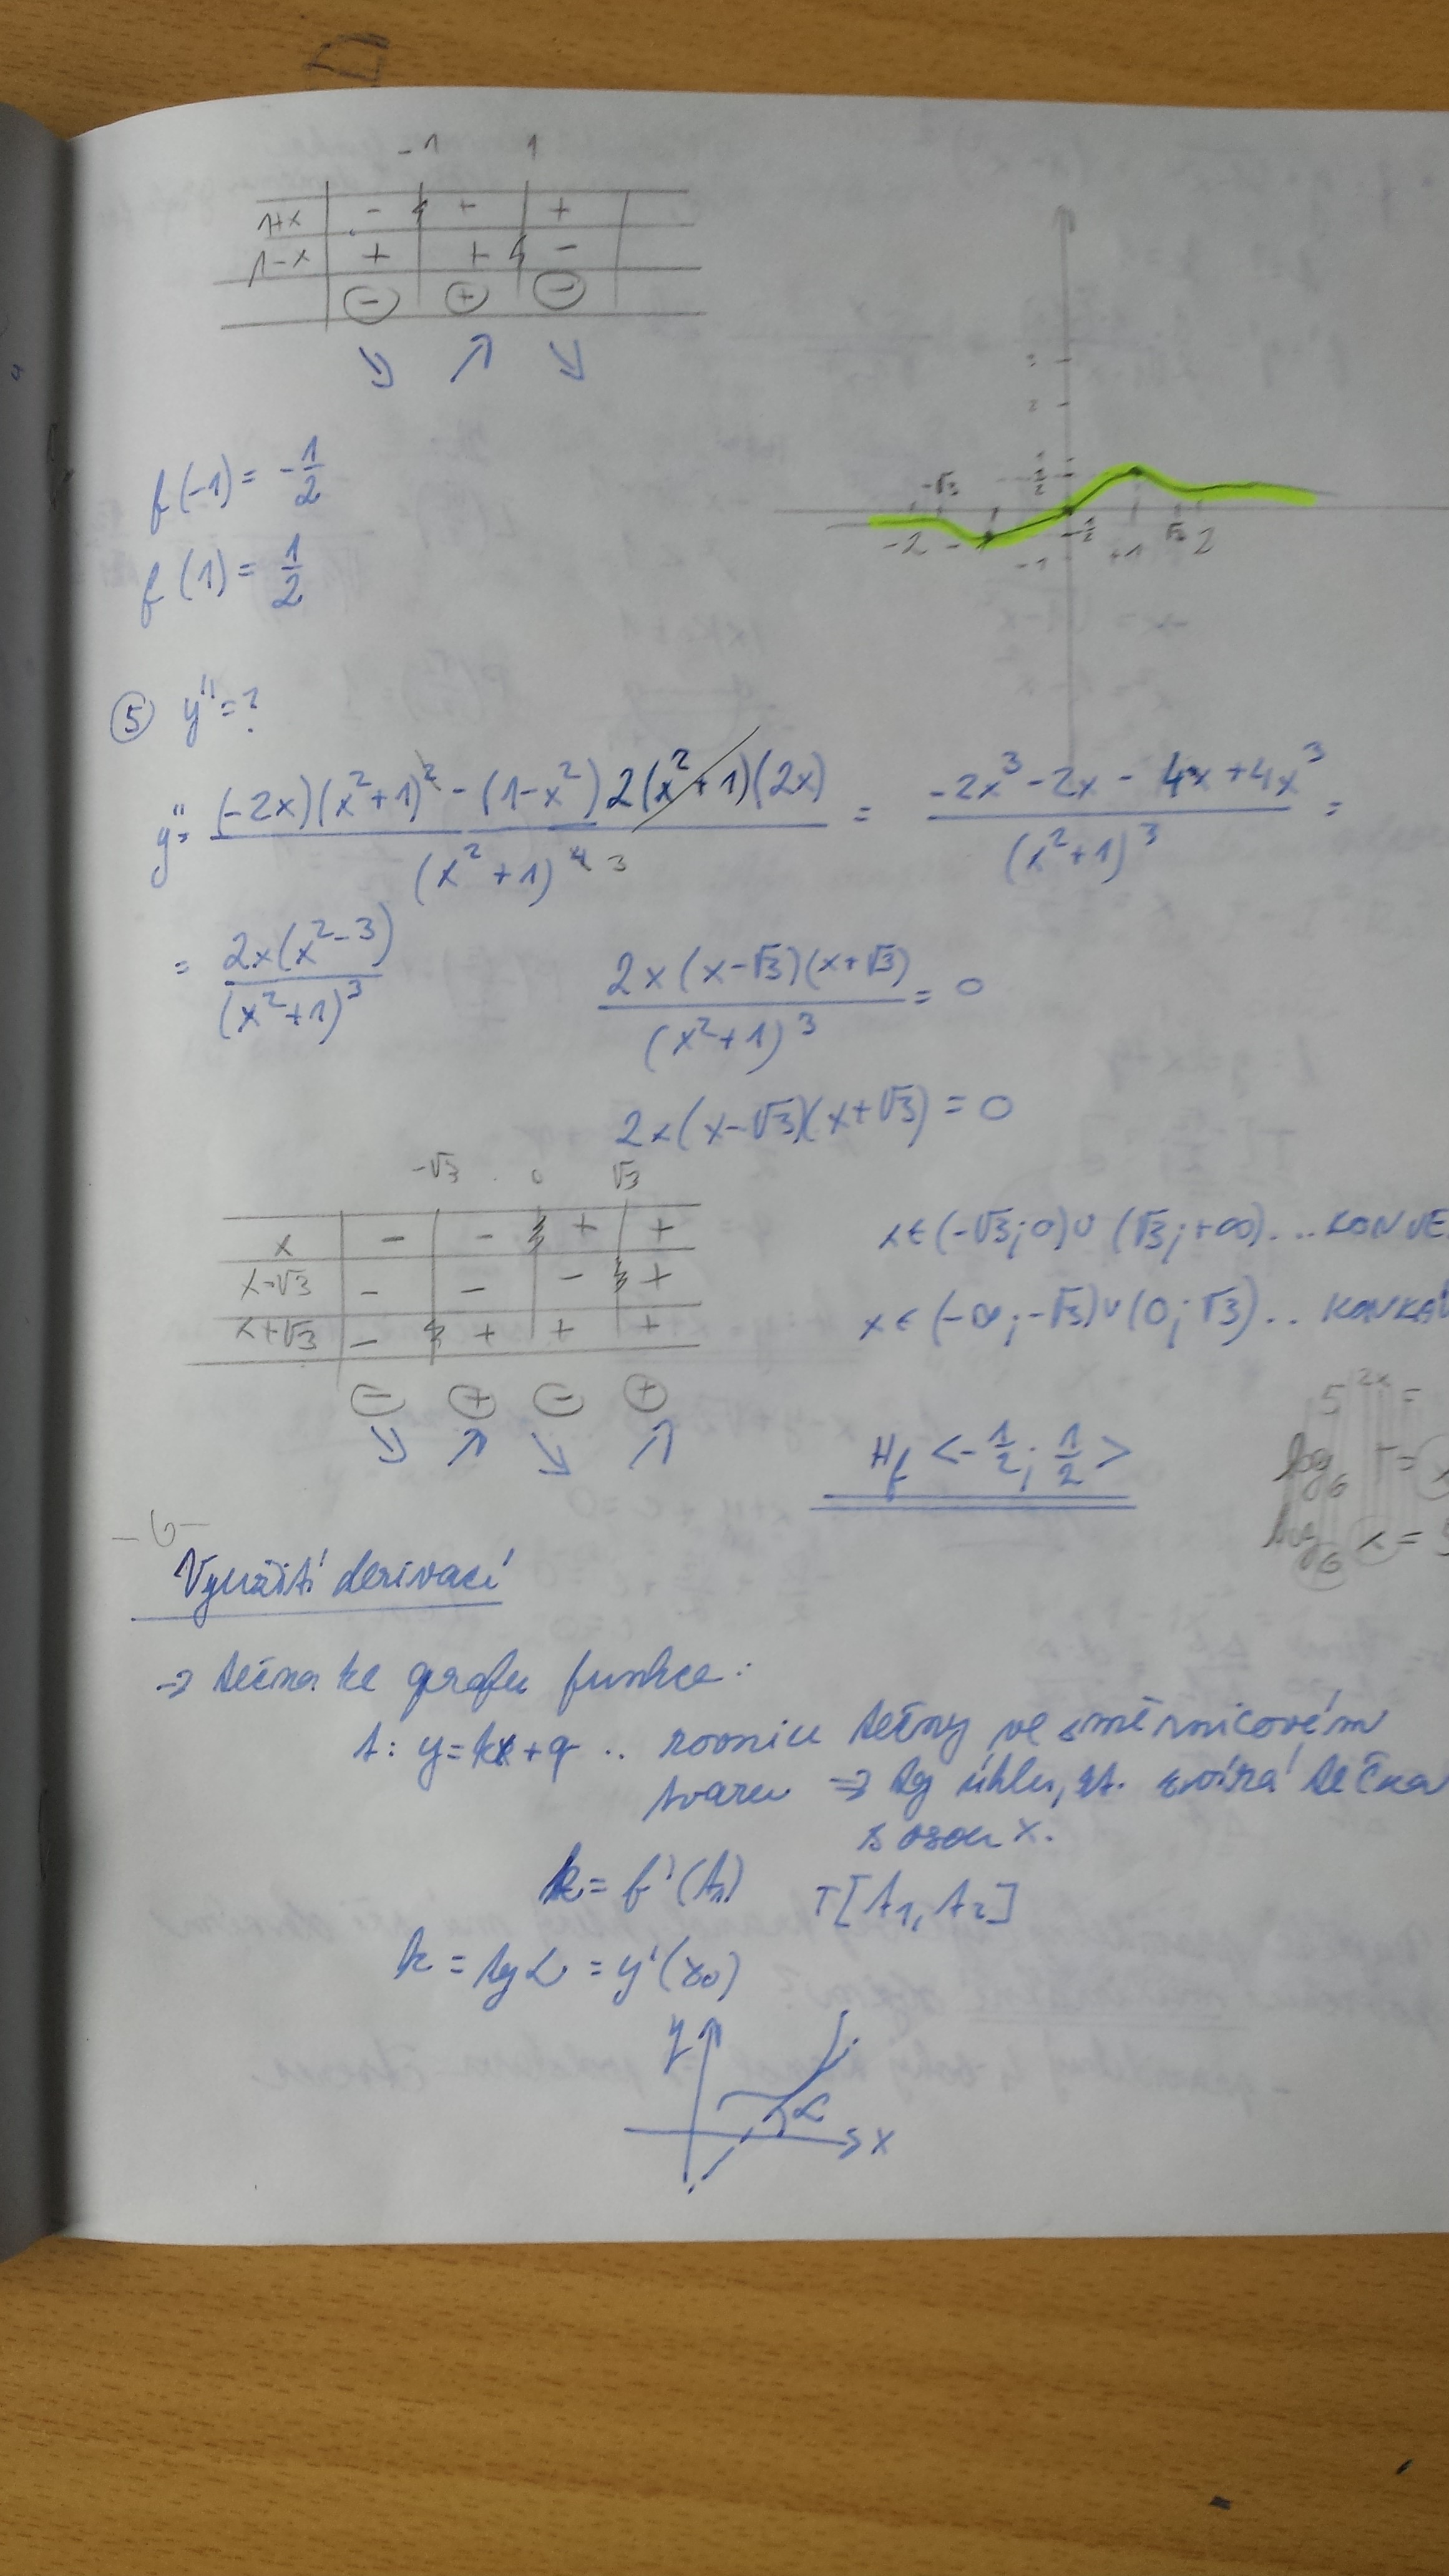 -1 1
1+x - + +
1-x + + -
- + -
↘ ↗ ↘
3
2
1
1/2
-√3
-2 -1 -1/2 +1 √3 2
-1
f(-1) = -1/2
f(1) = 1/2
⑤ y'' = ?
y'' = ((-2x)(x²+1)² - (1-x²)2(x²+1)(2x)) / (x²+1)⁴ ³ = (-2x³-2x - 4x+4x³) / (x²+1)³ =
= 2x(x²-3) / (x²+1)³
2x(x-√3)(x+√3) / (x²+1)³ = 0
2x(x-√3)(x+√3) = 0
-√3 0 √3
x - - + +
x-√3 - - - +
x+√3 - + + +
- + - +
↘ ↗ ↘ ↗
x∈(-√3;0)∪(√3;+∞)... KONVE
x∈(-∞;-√3)∪(0;√3).. KONKÁ
H_f <-1/2; 1/2>
5^2x =
log₆
log₆ x =
-6-
Využití derivací
⇒ tečna ke grafu funkce:
t: y=kx+q .. rovnice tečny ve směrnicovém
tvaru ⇒ tg úhlu, kt. svírá tečna
s osou x.
k = f'(t₁) T[t₁, t₂]
k = tg α = y'(x₀)
y
α
x